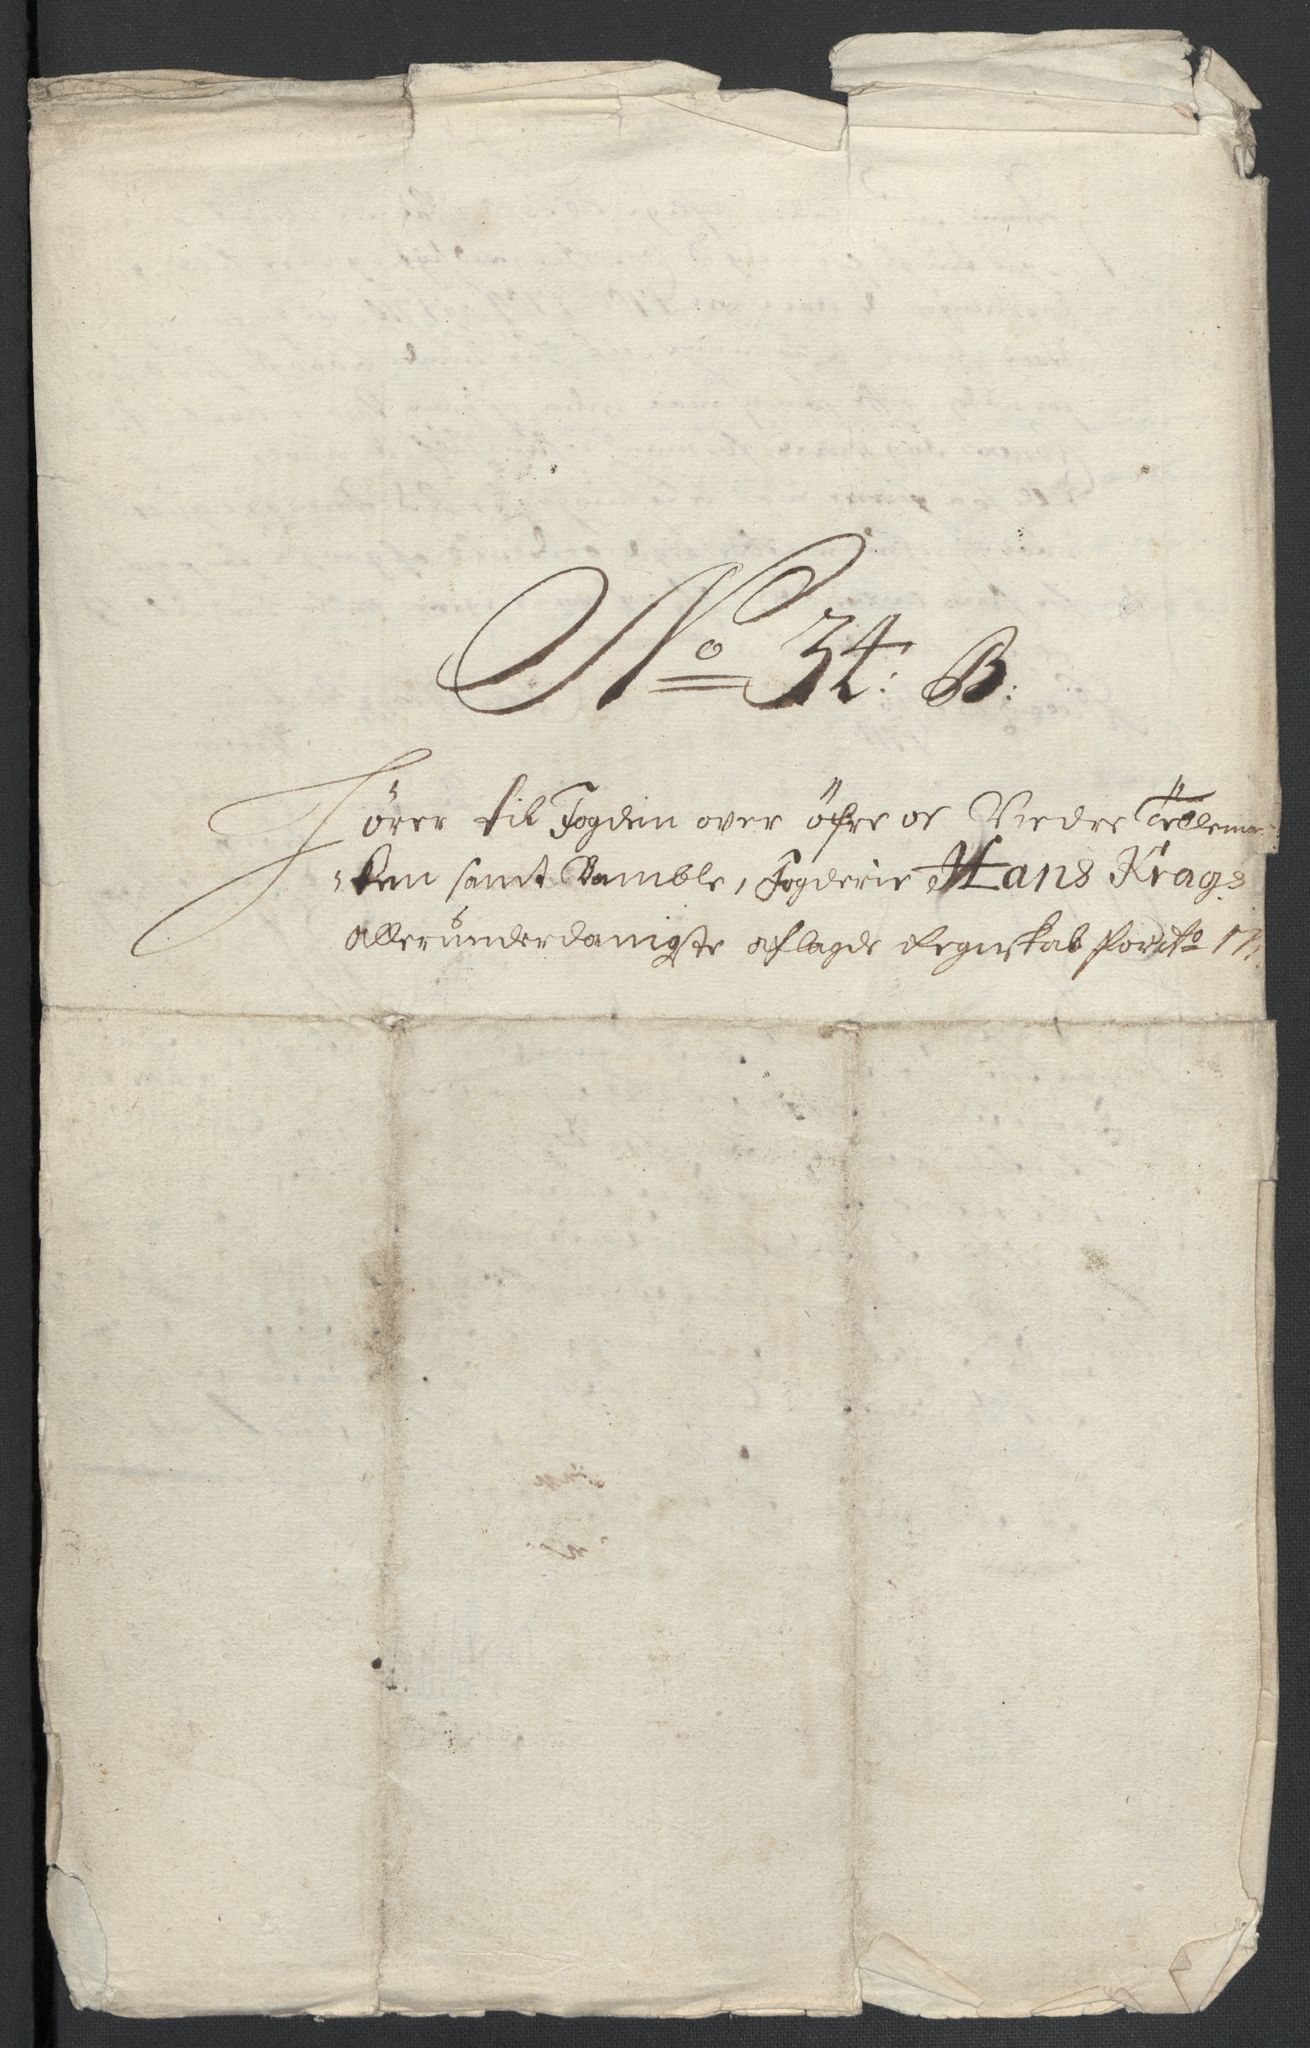 No 34: B:
Hörer til Fogden over öfre oc Nedre Tellemar
ken samt Bamble, Fogderie Hans Krags
allerunderdanigste aflagde Regnskab for Ao 17